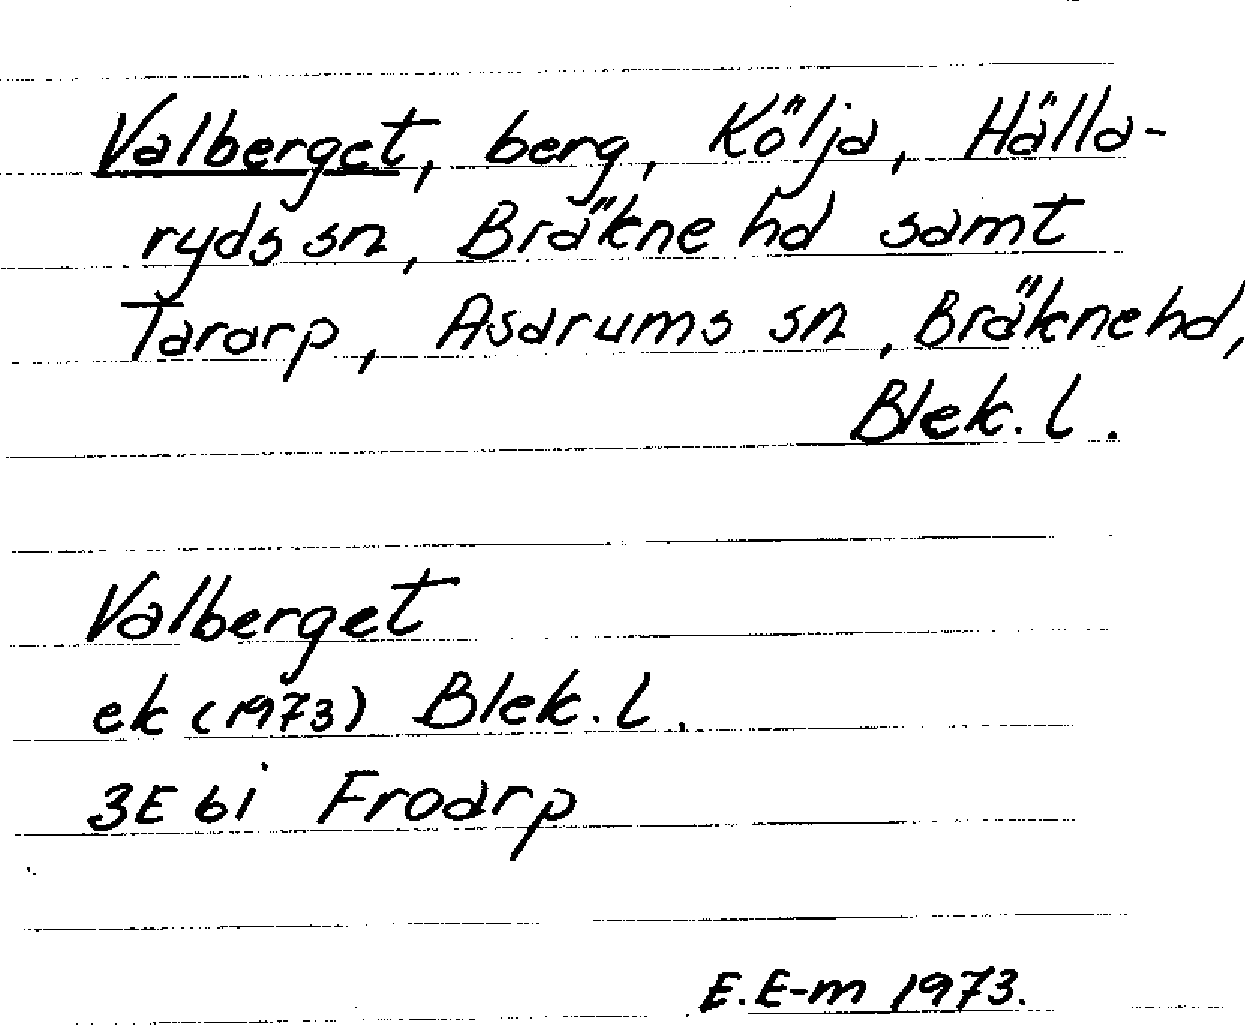 Valberget, berg, Kölja, Hälla-
ryds sn, Bräkne hd samt
Tararp, Asarums sn, Bräkne hd,
Blek. l.
Valberget
ek (1973) Blek. l.
3E 6i Froarp
E. E-m 1973.